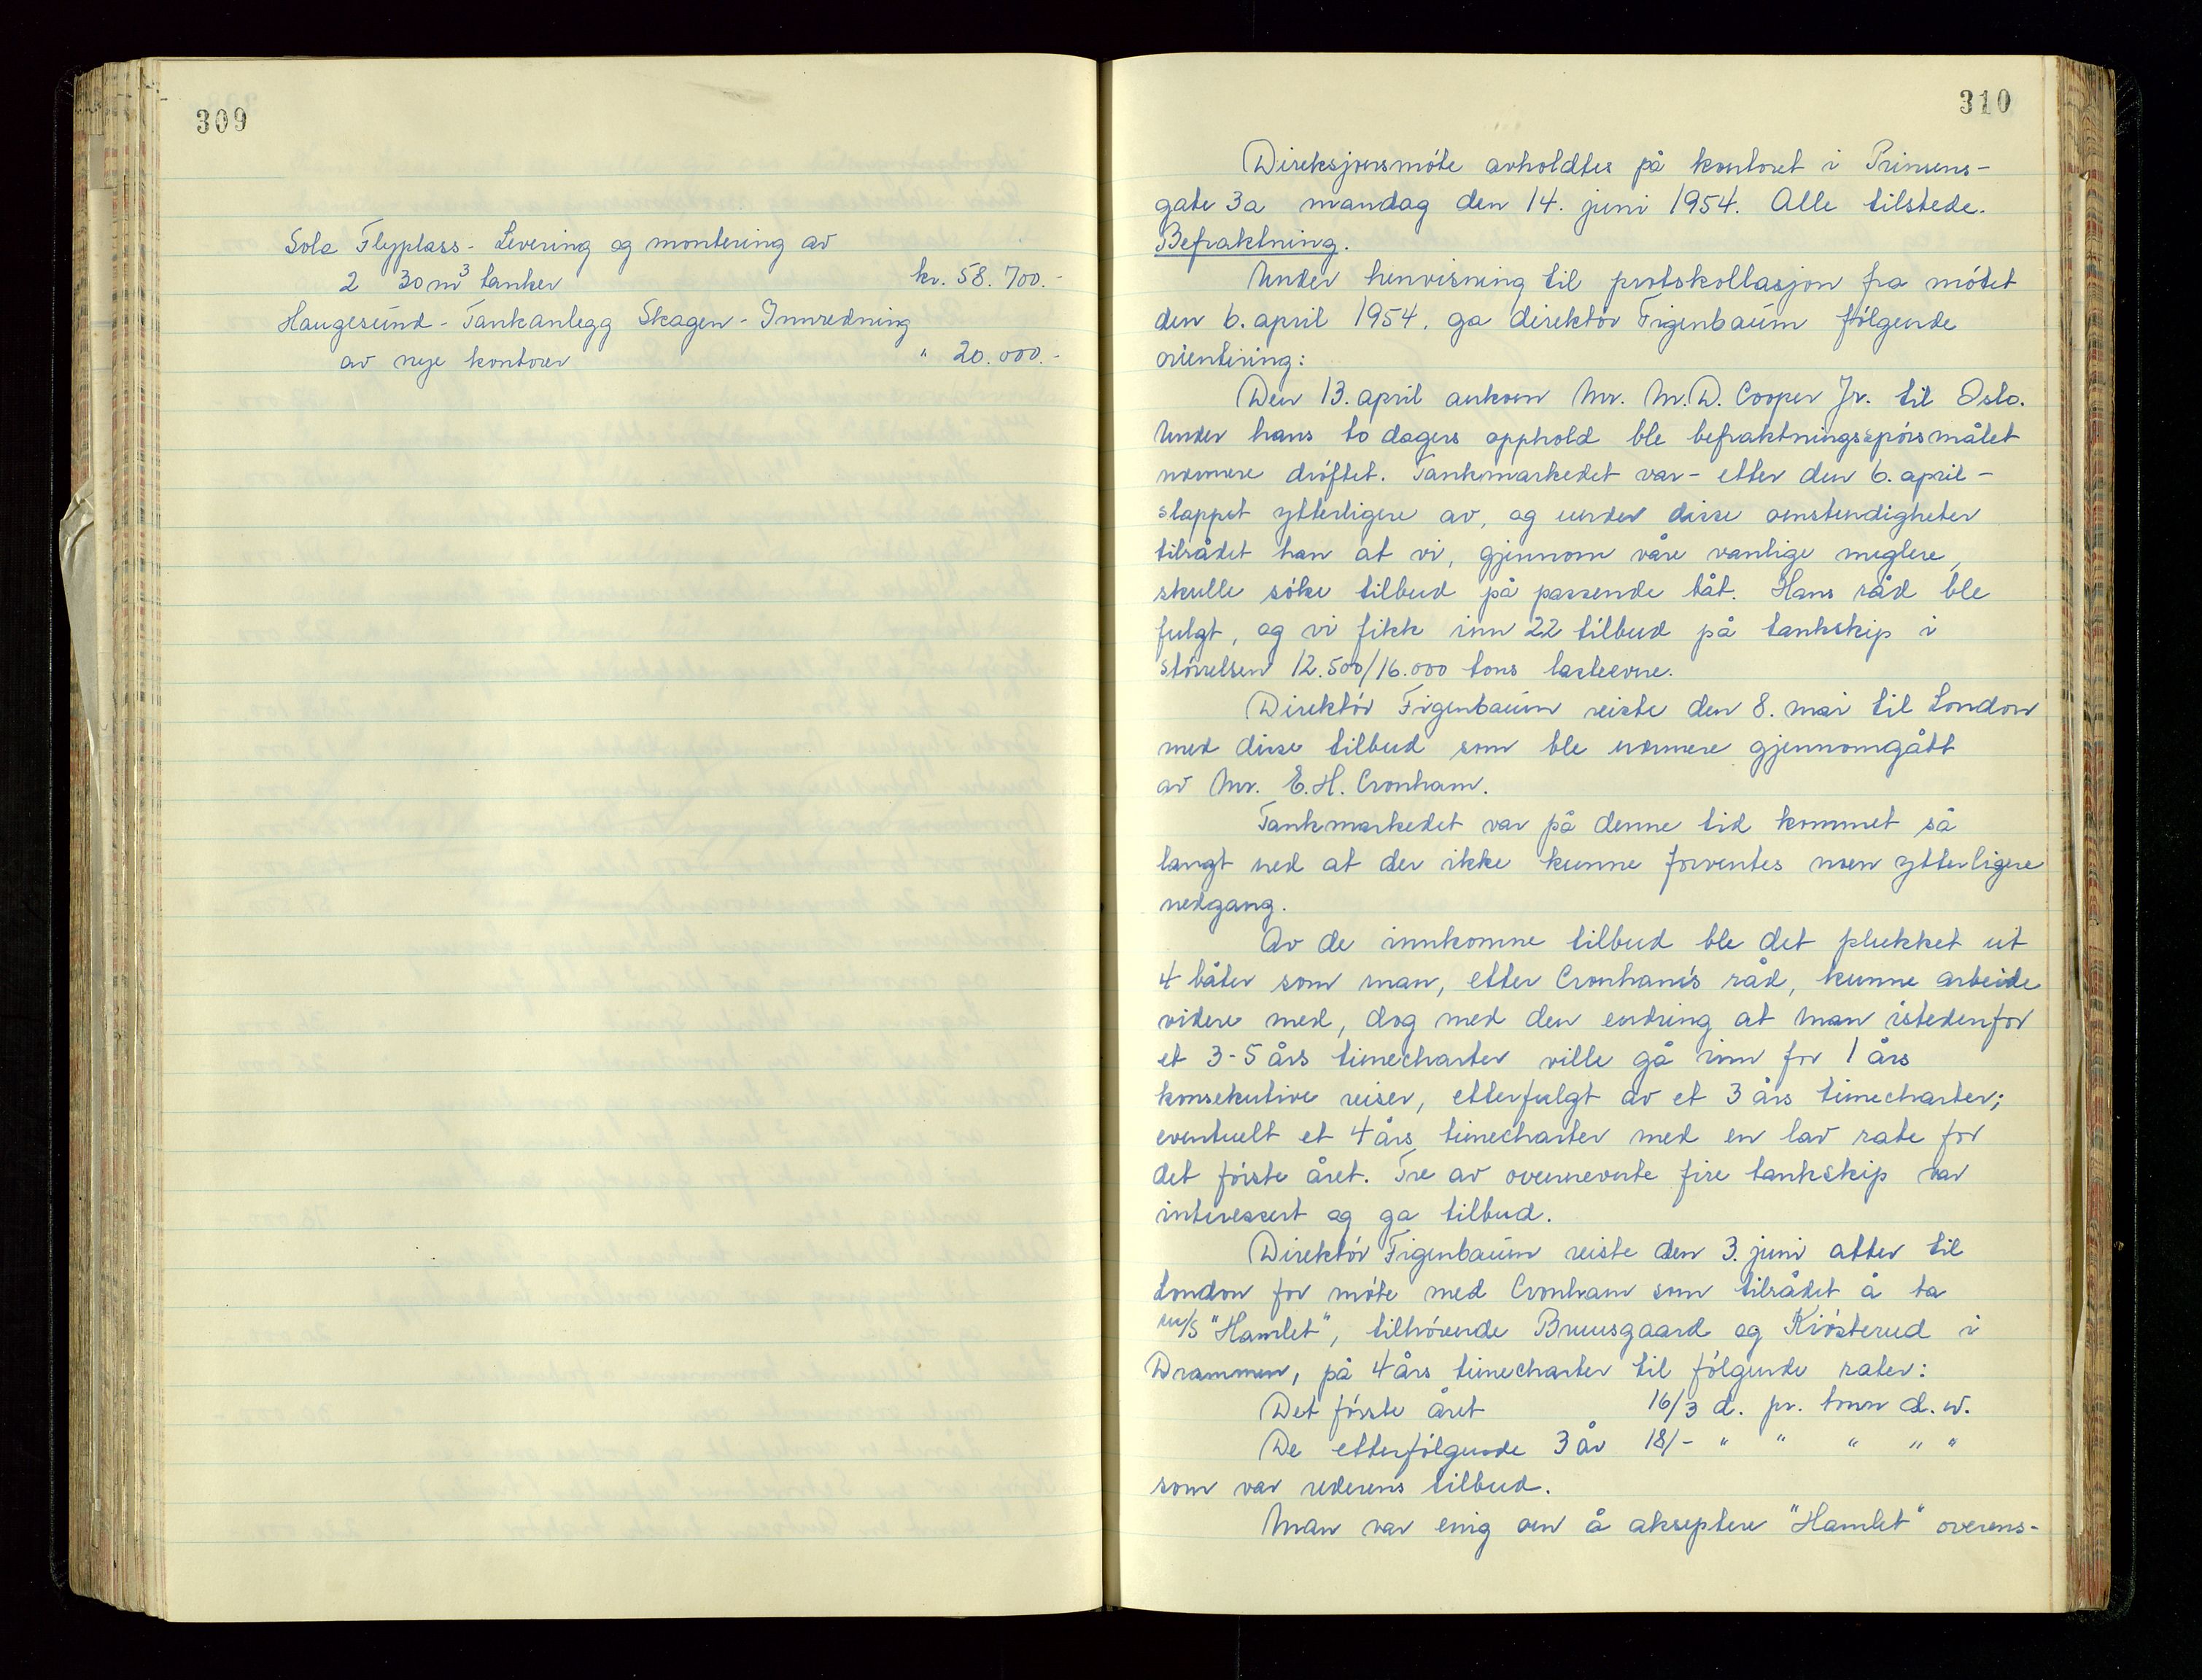 309
Sola Flyplass - Levering og montering av
2 30 m³ tanker kr. 58.700.-
Haugesund - Tankanlegg Skagen - Innredning
av nye kontorer " 20.000.-
310
Direksjonsmöte avholdtes på kontoret i Prinsens-
gate 3a mandag den 14. juni 1954. Alle tilstede.
Befraktning.
Under henvisning til protokollasjon fra mötet
den 6. april 1954, ga direktör Figenbaum fölgende
orientering:
Den 13. april ankom Mr. M.D. Cooper Jr. til Oslo.
Under hans to dagers opphold ble befraktningsspörsmålet
nærmere dröftet. Tankmarkedet var - etter den 6. april -
slappet ytterligere av, og under disse omstendigheter
tilrådet han at vi, gjennom våre vanlige meglere,
skulle söke tilbud på passende båt. Hans råd ble
fulgt, og vi fikk inn 22 tilbud på tankskip i
störrelsen 12.500/16.000 tons lasteevne.
Direktör Figenbaum reiste den 8. mai til London
med disse tilbud som ble nærmere gjennomgått
av Mr. E.H. Cronham.
Tankmarkedet var på denne tid kommet så
langt ned at der ikke kunne forventes noen ytterligere
nedgang.
Av de innkomne tilbud ble det plukket ut
4 båter som man, etter Cronham's råd, kunne arbeide
videre med, dog med den endring at man istedenfor
et 3-5 års timecharter ville gå inn for 1 års
konsekutive reiser, etterfulgt av et 3 års timecharter;
eventuelt et 4 års timecharter med en lav rate for
det förste året. Tre av ovennevnte fire tankskip var
interessert og ga tilbud.
Direktör Figenbaum reiste den 3. juni atter til
London for möte med Cronham som tilrådet å ta
m/s "Hamlet", tilhörende Bruusgaard og Kiösterud i
Drammen, på 4 års timecharter til fölgende rater:
Det förste året 16/3 d. pr. tonn d.w.
De etterfölgende 3 år 18/- " " " " "
som var rederens tilbud.
Man var enig om å akseptere "Hamlet" overens-